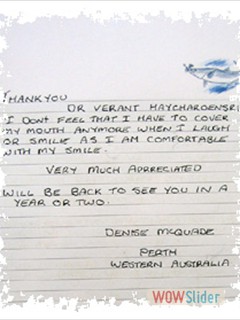 THANKYOU
DR VERANT MAYCHAROENSRI
I DONT FEEL THAT I HAVE TO COVER
MY MOUTH ANYMORE WHEN I LAUGH
OR SMILE AS I AM COMFORTABLE
WITH MY SMILE.
VERY MUCH APPRECIATED
WILL BE BACK TO SEE YOU IN A
YEAR OR TWO.
DENISE MCQUADE
PERTH
WESTERN AUSTRALIA
WOWSlider